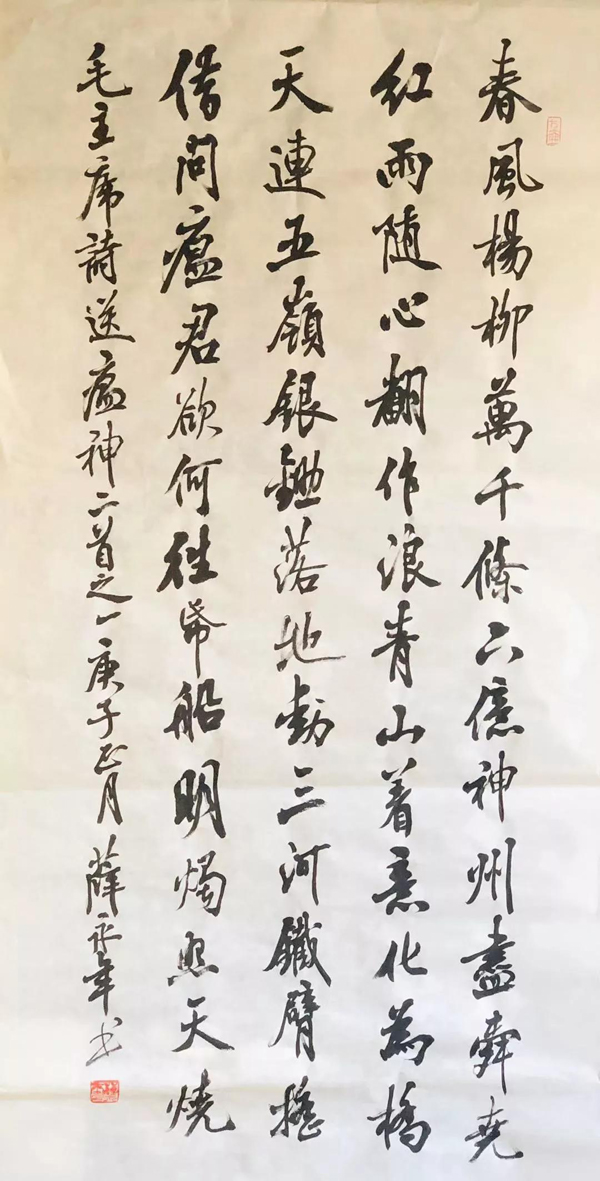 春風楊柳萬千條六億神州盡舜尭
紅雨随心翻作浪青山着意化為橋
天連五嶺銀鋤落地動三河鐵臂摇
借問瘟君欲何往帋船明燭照天燒
毛主席詩送瘟神二首之一庚子正月薛永年书